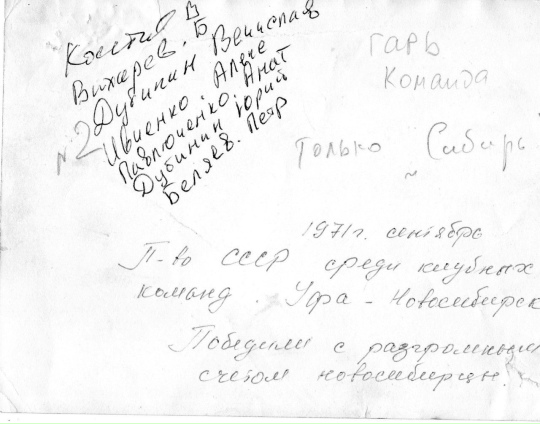 Костив В
Вихарев. Б
Дубинин Венислав
Ивченко. Алекс
Павлюченко. Анат
Дубинин Юрий
Беляев. Петр
№2
ГАРЬ
Команда
Только Сибирь
1971г. сентябрь
П-во СССР среди клубных
команд. Уфа - Новосибирск
Победили с разгромным
счетом новосибирцы.